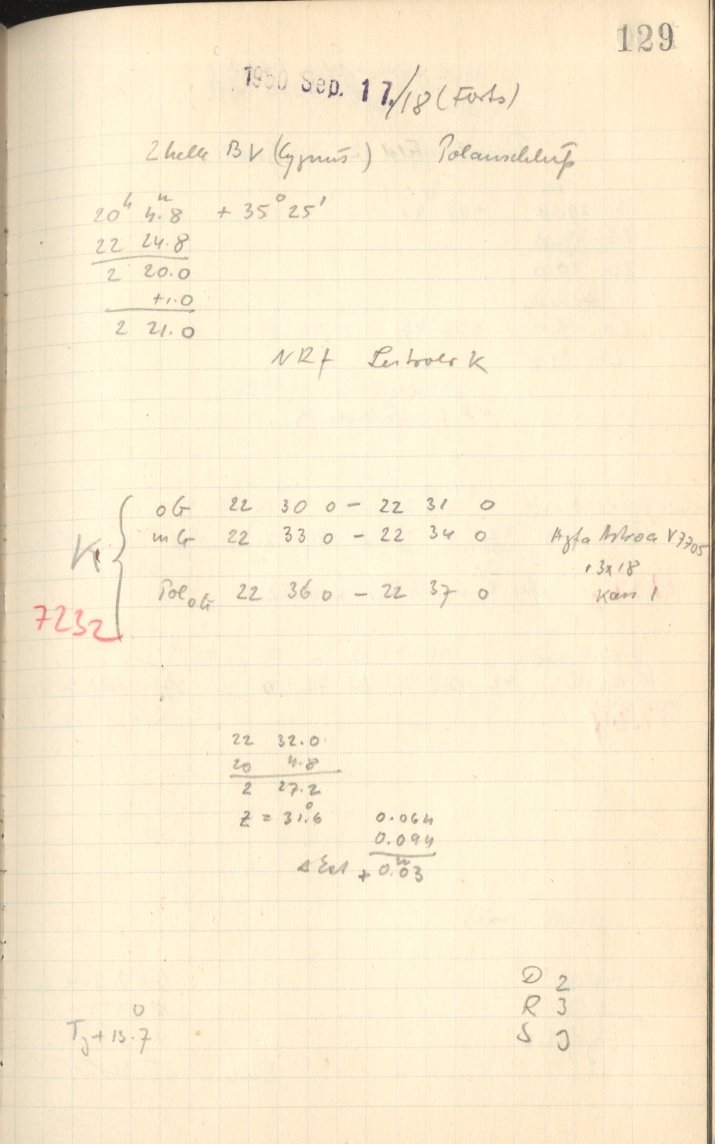 129
1950 Sep. 17./18 (Forts)
2 helle BV (Cygnus) Polanschluß
20h 4m.8 + 35° 25'
22 24.8
2 20.0
+1.0
2 21.0
K
oG 22 30 0 - 22 31 0
mG 22 33 0 - 22 34 0 Agfa Astro V7705
+3x18
Pol oG 22 36 0 - 22 37 0 Kass 1
7232
22 32.0
20 4.8
2 27.2
z = 31°.6 0.064
0.094
Δ Ext + 0m.03
D 2
R 3
S 3
TJ + 13°.7